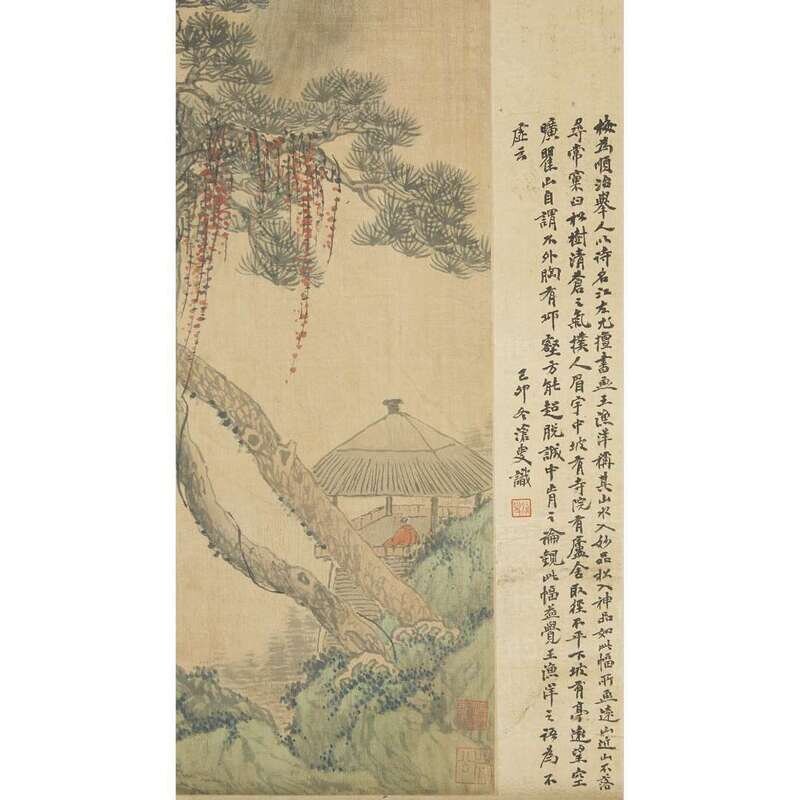 梅為順治舉人以詩名江左尤擅書画王漁洋稱其山水入妙品松入神品如此幅所画遠山近山不落
尋常窠臼松樹清蒼之氣撲人眉宇中坡有寺院有廬舍取徑不平下坡有亭遠望空
曠瞿山自謂不外胸有邱壑方能超脫誠中肯之論觀此幅益覺王漁洋之語為不
虛云
己卯冬滄叟識